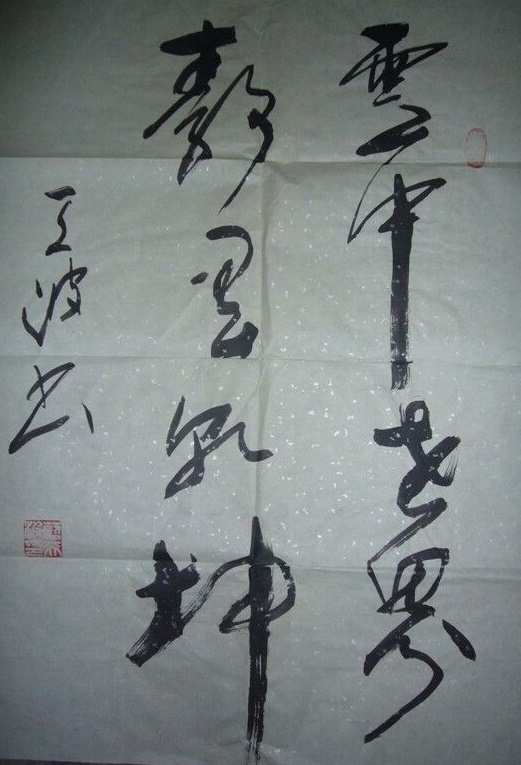 雲中世界
静里乾坤
王波书